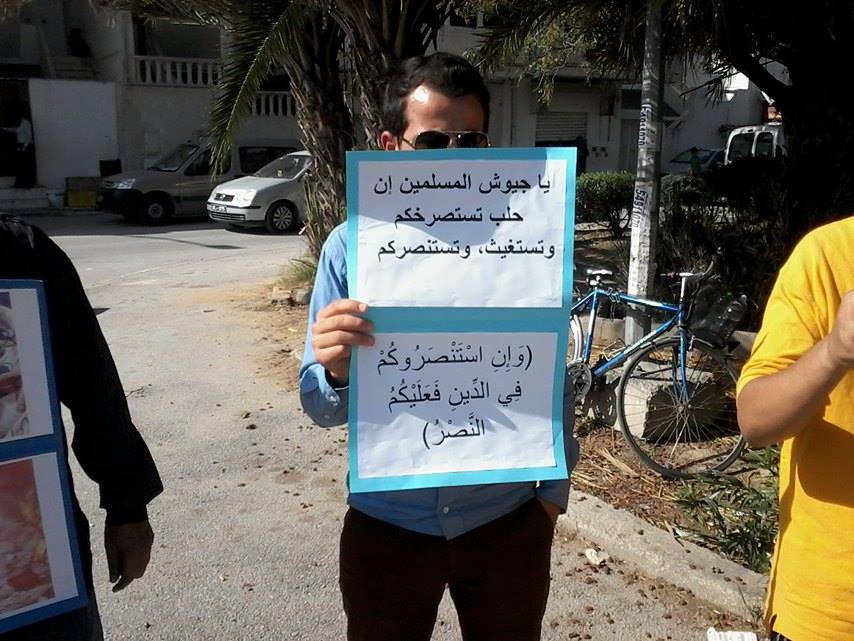 يا جيوش المسلمين إن
حلب تستصرخكم
وتستغيث، وتستنصركم
(وَإِنِ اسْتَنْصَرُوكُمْ
فِي الدِّينِ فَعَلَيْكُمُ
النَّصْرُ)